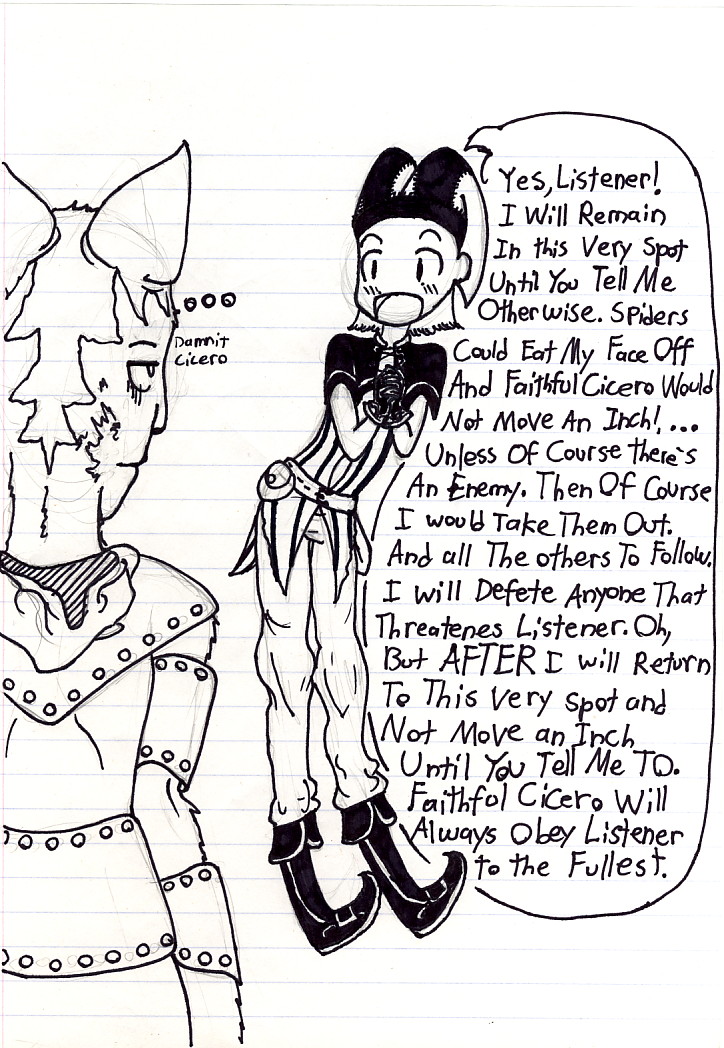 ...
Damnit
Cicero
Yes, Listener!
I Will Remain
In this Very Spot
Until You Tell Me
Otherwise. Spiders
Could Eat My Face Off
And Faithful Cicero Would
Not Move An Inch!...
Unless Of Course there's
An Enemy. Then Of Course
I would Take Them Out.
And all The others To Follow.
I will Defete Anyone That
Threatenes Listener. Oh,
But AFTER I will Return
To This Very spot and
Not Move an Inch
Until You Tell Me TO.
Faithful Cicero Will
Always Obey Listener
to the Fullest.